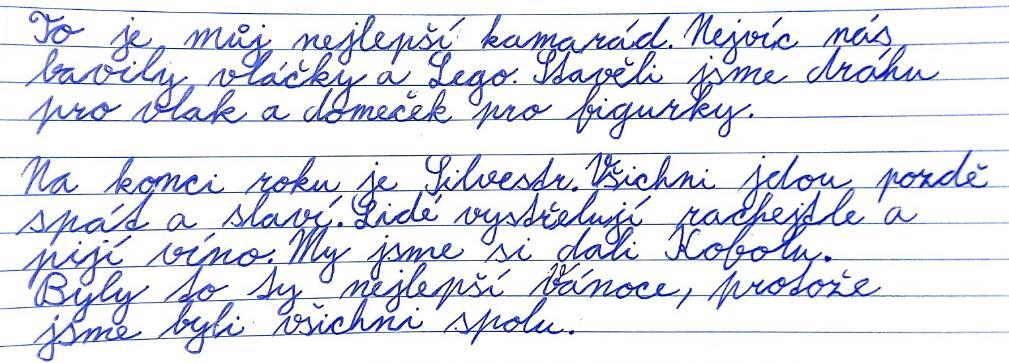 To je můj nejlepší kamarád. Nejvíc nás
bavily vláčky a Lego. Stavěli jsme dráhu
pro vlak a domeček pro figurky.
Na konci roku je Silvestr. Všichni jdou pozdě
spát a slaví. Lidé vystřelují rachejtle a
pijí víno. My jsme si dali Kofolu.
Byly to ty nejlepší Vánoce, protože
jsme byli všichni spolu.